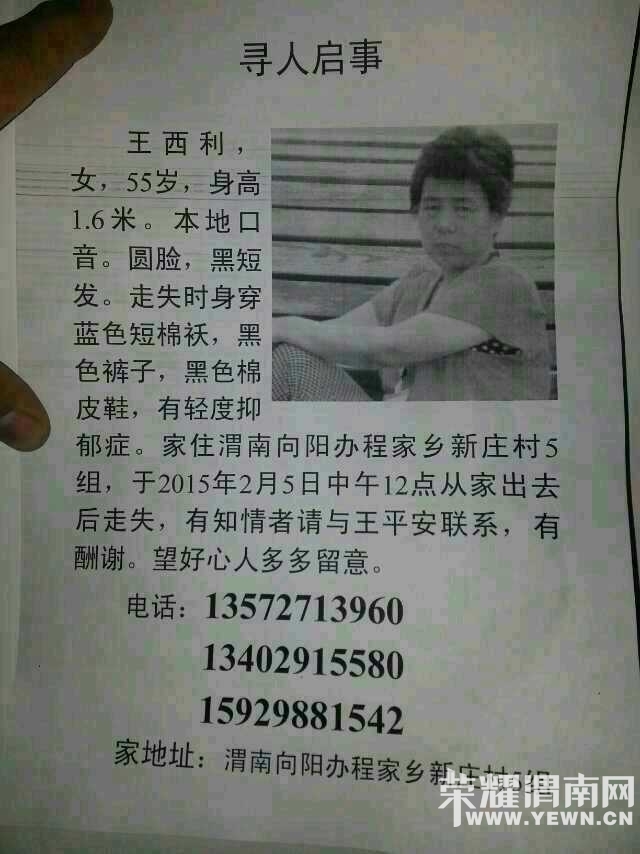 寻人启事
王西利，
女，55岁，身高
1.6米。本地口
音。圆脸，黑短
发。走失时身穿
蓝色短棉袄，黑
色裤子，黑色棉
皮鞋，有轻度抑
郁症。家住渭南向阳办程家乡新庄村5
组，于2015年2月5日中午12点从家出去
后走失，有知情者请与王平安联系，有
酬谢。望好心人多多留意。
电话：13572713960
13402915580
15929881542
家地址：渭南向阳办程家乡新庄村5组
荣耀渭南网
WWW.YEWN.CN